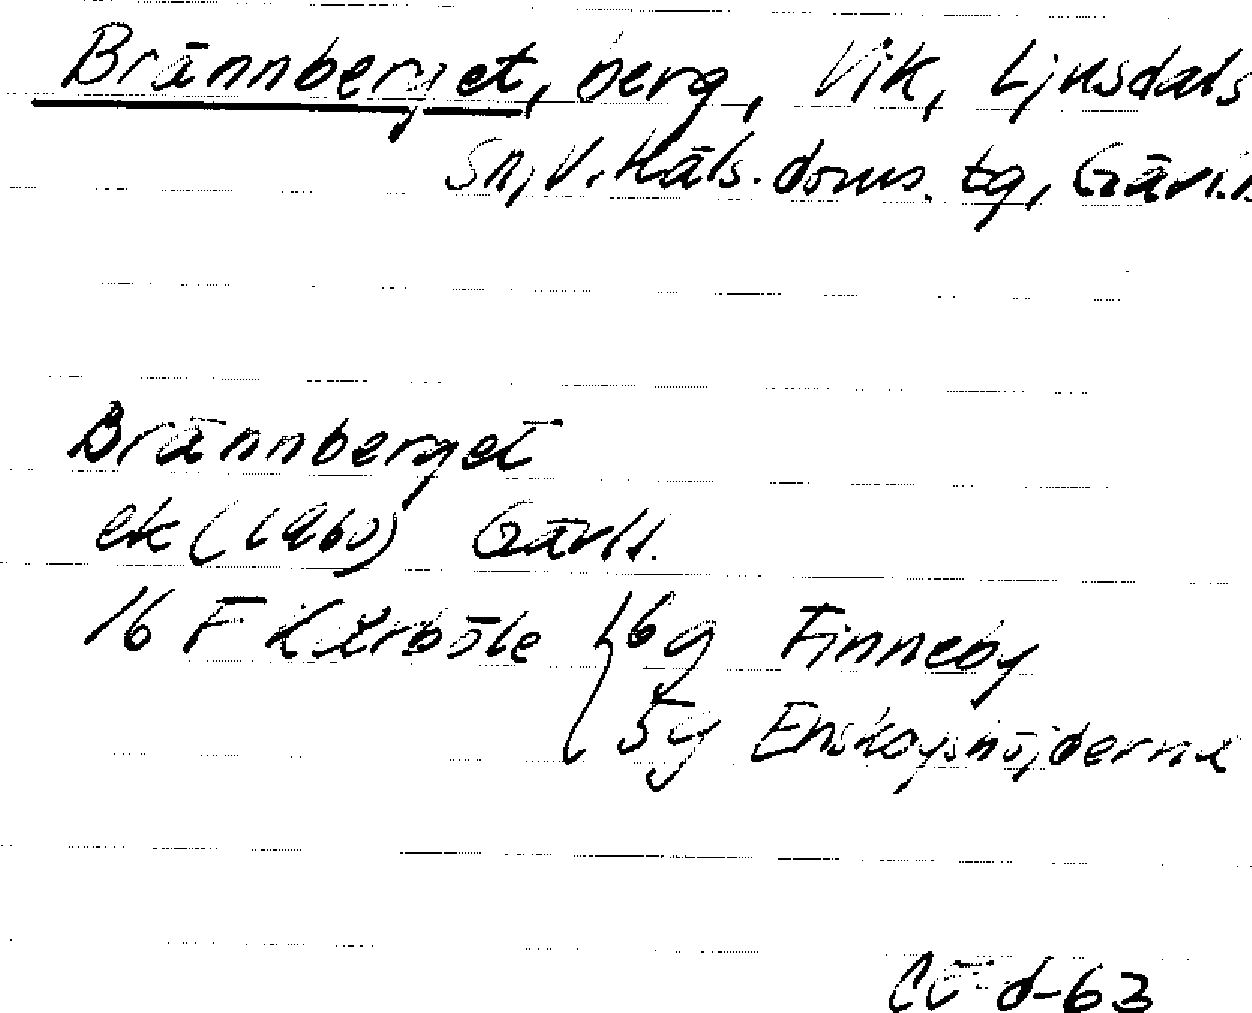 Brännberget, berg, Vik, Ljusdals
Sn, V. Häls. doms. tg, Gävl.
Brännberget
ek (1960) Gävll.
16 F Kårböle { 6g Finneby
5g Enskogshöjderna
d-63